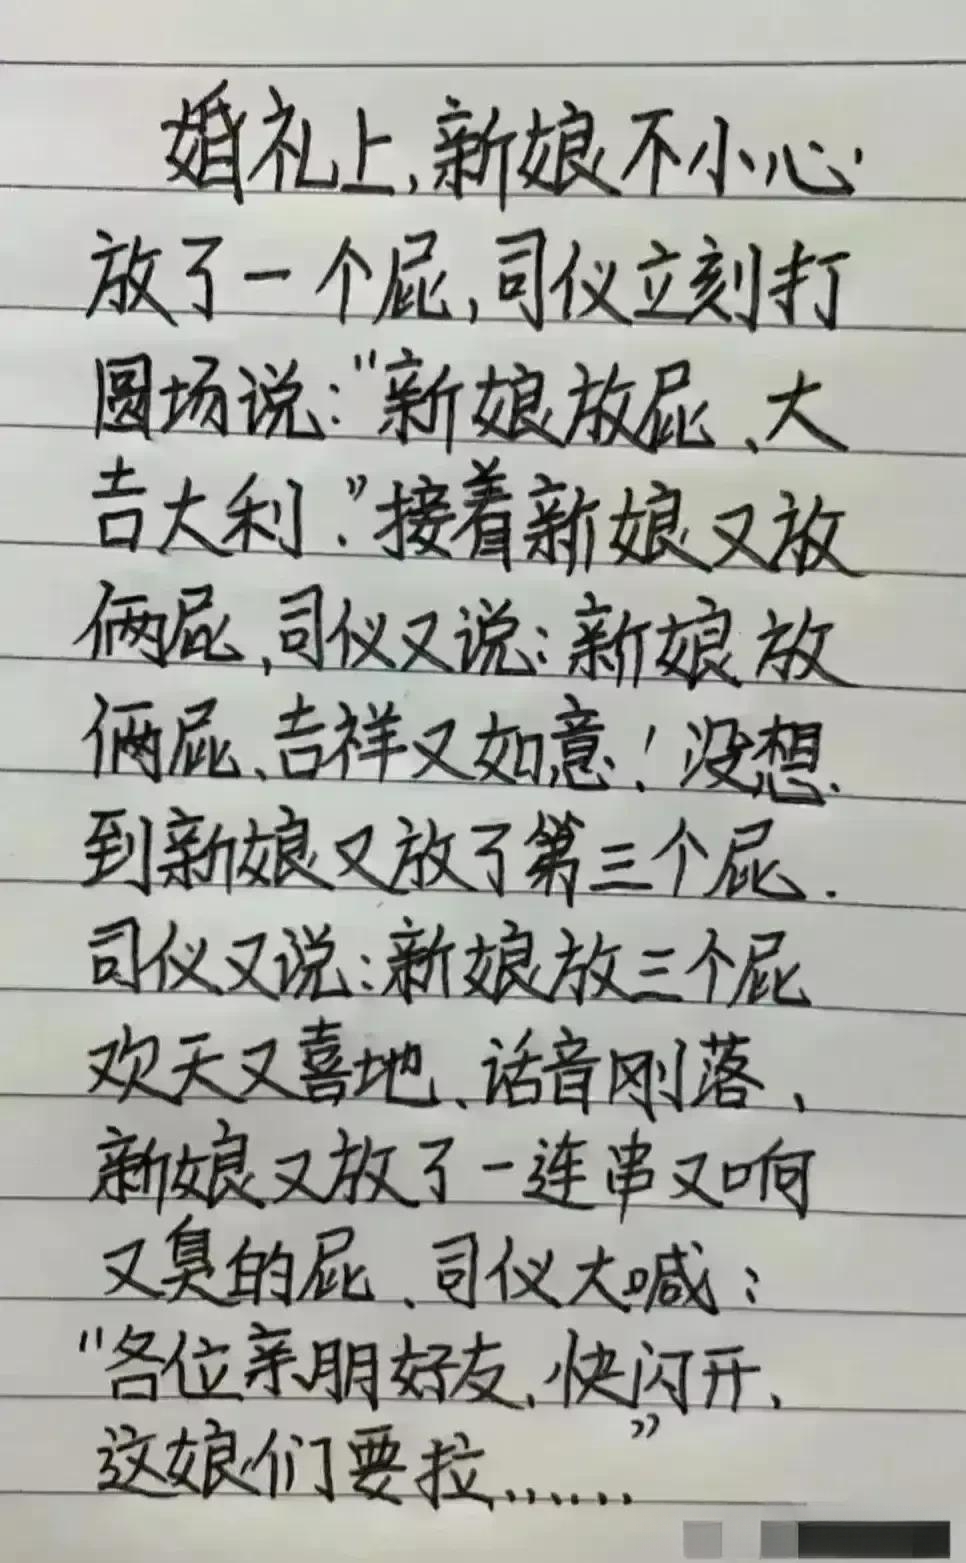 婚礼上,新娘不小心
放了一个屁,司仪立刻打
圆场说:"新娘放屁、大
吉大利."接着新娘又放
俩屁,司仪又说:新娘放
俩屁、吉祥又如意!没想
到新娘又放了第三个屁.
司仪又说:新娘放三个屁
欢天又喜地、话音刚落、
新娘又放了一连串又响
又臭的屁、司仪大喊:
"各位亲朋好友,快闪开、
这娘们要拉......"